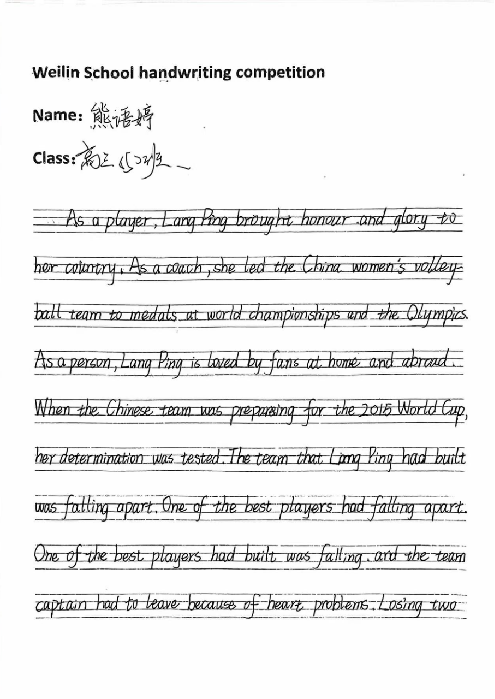 Weilin School handwriting competition
Name: 熊语婷
Class: 高三(5)班
As a player, Lang Ping brought honour and glory to
her country. As a coach, she led the China women's volley-
ball team to medals at world championships and the Olympics.
As a person, Lang Ping is loved by fans at home and abroad.
When the Chinese team was preparing for the 2015 World Cup,
her determination was tested. The team that Lang Ping had built
was falling apart. One of the best players had falling apart.
One of the best players had built was falling. and the team
captain had to leave because of heart problems. Losing two